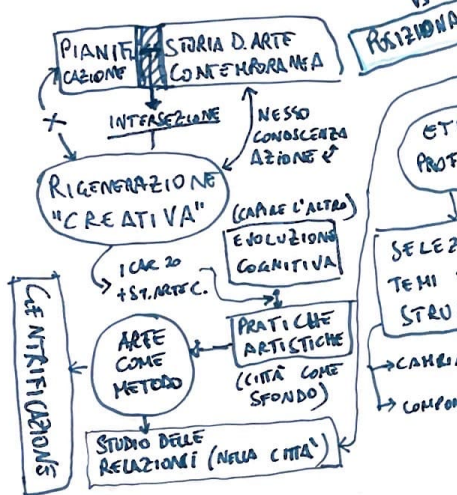 PIANIFI
CAZIONE
STORIA D. ARTE
CONTEMPORANEA
POSIZIONA
INTERSEZIONE
NESSO
CONOSCENZA
AZIONE
RIGENERAZIONE
"CREATIVA"
(CAPIRE L'ALTRO)
EVOLUZIONE
COGNITIVA
ICAR 20
+ ST. ARTE C.
PRATICHE
ARTISTICHE
(CITTÀ COME
SFONDO)
ARTE
COME
METODO
GENTRIFICAZIONE
STUDIO DELLE
RELAZIONI (NELLA CITTÀ)
ET
PROF
SELEZ
TEMI
STRU
CAMBIA
COMPON